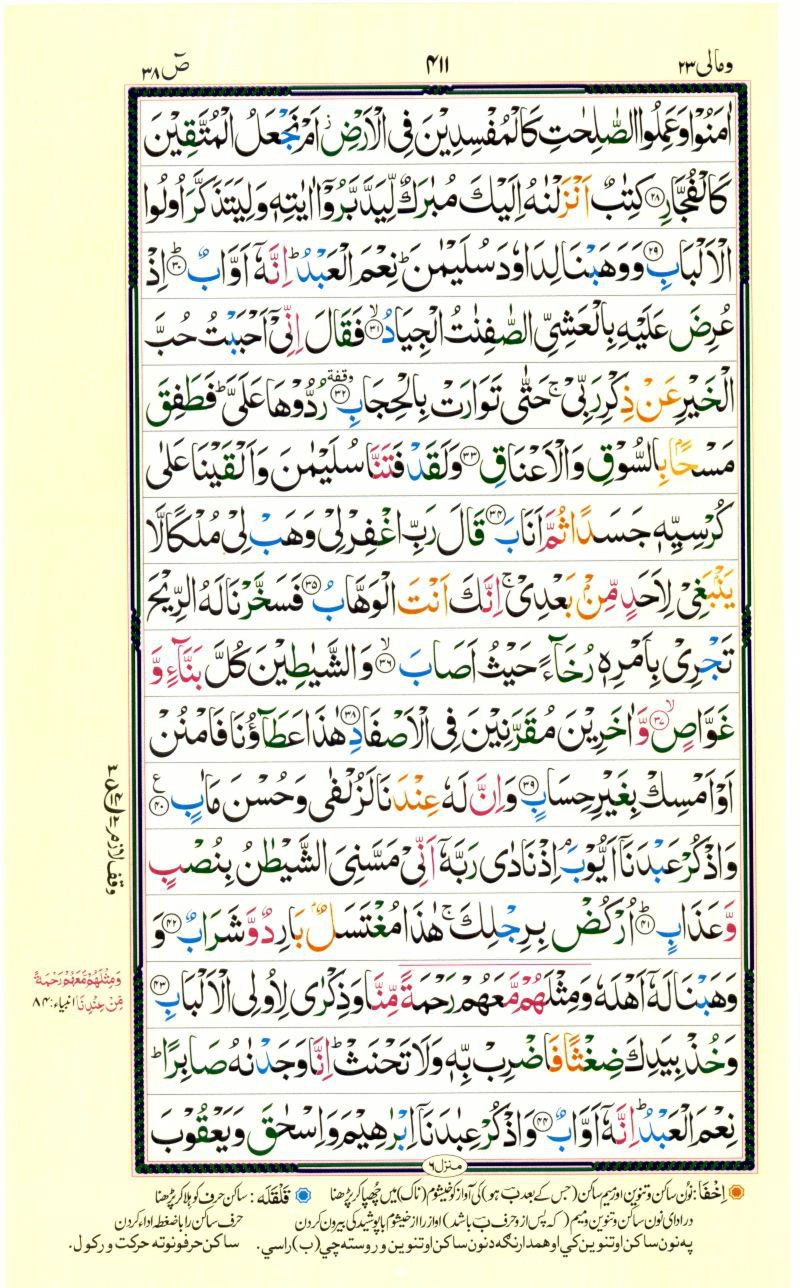 ومالی ۲۳
۴۱۱
صٓ ۳۸
اٰمَنُوۡا وَعَمِلُوا الصّٰلِحٰتِ كَالۡمُفۡسِدِيۡنَ فِى الۡاَرۡضِ ز اَمۡ نَجۡعَلُ الۡمُتَّقِيۡنَ
كَالۡفُجَّارِ ﴿۲۸﴾ كِتٰبٌ اَنۡزَلۡنٰهُ اِلَيۡكَ مُبٰرَكٌ لِّيَدَّبَّرُوۡۤا اٰيٰتِهٖ وَلِيَتَذَكَّرَ اُولُوا
الۡاَلۡبَابِ ﴿۲۹﴾ وَوَهَبۡنَا لِدَاوٗدَ سُلَيۡمٰنَ ؕ نِعۡمَ الۡعَبۡدُ ؕ اِنَّهٗۤ اَوَّابٌ ؕ ﴿۳۰﴾ اِذۡ
عُرِضَ عَلَيۡهِ بِالۡعَشِىِّ الصّٰفِنٰتُ الۡجِيَادُ ۙ ﴿۳۱﴾ فَقَالَ اِنِّىۡۤ اَحۡبَبۡتُ حُبَّ
الۡخَيۡرِ عَنۡ ذِكۡرِ رَبِّىۡ ۚ حَتّٰى تَوَارَتۡ بِالۡحِجَابِ وقفة ﴿۳۲﴾ رُدُّوۡهَا عَلَىَّ ؕ فَطَفِقَ
مَسۡحًۢا بِالسُّوۡقِ وَالۡاَعۡنَاقِ ﴿۳۳﴾ وَلَقَدۡ فَتَنَّا سُلَيۡمٰنَ وَاَلۡقَيۡنَا عَلٰى
كُرۡسِيِّهٖ جَسَدًا ثُمَّ اَنَابَ ﴿۳۴﴾ قَالَ رَبِّ اغۡفِرۡ لِىۡ وَهَبۡ لِىۡ مُلۡكًا لَّا
يَنۡۢبَغِىۡ لِاَحَدٍ مِّنۡۢ بَعۡدِىۡ ۚ اِنَّكَ اَنۡتَ الۡوَهَّابُ ﴿۳۵﴾ فَسَخَّرۡنَا لَهُ الرِّيۡحَ
تَجۡرِىۡ بِاَمۡرِهٖ رُخَآءً حَيۡثُ اَصَابَ ۙ ﴿۳۶﴾ وَالشَّيٰطِيۡنَ كُلَّ بَنَّآءٍ وَّ
غَوَّاصٍ ۙ ﴿۳۷﴾ وَّاٰخَرِيۡنَ مُقَرَّنِيۡنَ فِى الۡاَصۡفَادِ ﴿۳۸﴾ هٰذَا عَطَآؤُنَا فَامۡنُنۡ
اَوۡ اَمۡسِكۡ بِغَيۡرِ حِسَابٍ ﴿۳۹﴾ وَاِنَّ لَهٗ عِنۡدَنَا لَزُلۡفٰى وَحُسۡنَ مَاٰبٍ ع ﴿۴۰﴾
وَاذۡكُرۡ عَبۡدَنَاۤ اَيُّوۡبَ ۘ اِذۡ نَادٰى رَبَّهٗۤ اَنِّىۡ مَسَّنِىَ الشَّيۡطٰنُ بِنُصۡبٍ
وَّعَذَابٍ ؕ ﴿۴۱﴾ اُرۡكُضۡ بِرِجۡلِكَ ۚ هٰذَا مُغۡتَسَلٌۢ بَارِدٌ وَّشَرَابٌ ﴿۴۲﴾ وَ
وَهَبۡنَا لَهٗۤ اَهۡلَهٗ وَمِثۡلَهُمۡ مَّعَهُمۡ رَحۡمَةً مِّنَّا وَذِكۡرٰى لِاُولِى الۡاَلۡبَابِ ﴿۴۳﴾
وَخُذۡ بِيَدِكَ ضِغۡثًا فَاضۡرِبۡ بِّهٖ وَلَا تَحۡنَثۡ ؕ اِنَّا وَجَدۡنٰهُ صَابِرًا ؕ
نِعۡمَ الۡعَبۡدُ ؕ اِنَّهٗۤ اَوَّابٌ ﴿۴۴﴾ وَاذۡكُرۡ عِبٰدَنَاۤ اِبۡرٰهِيۡمَ وَاِسۡحٰقَ وَيَعۡقُوۡبَ
وقف لازم
وَمِثۡلَهُمۡ مَّعَهُمۡ رَحۡمَةً
مِّنۡ عِنۡدِنَا انبیاء: ۸۴
منزل ۶
اِخۡفَا: نون ساکن و تنوین اور میم ساکن (جس کے بعد بؔ ہو) کی آواز کو خیشوم (ناک) میں چھپا کر پڑھنا
قَلۡقَلَہ: ساکن حرف کو ہلا کر پڑھنا
در ادای نون ساکن و تنوین و میم (که پس از و حرف بؔ باشد) آواز را از خیشوم با پوشیدگی بیرون کردن
حرف ساکن را با ضغطه اداء کردن
په نون ساکن او تنوین کي او همدارنګه د نون ساکن او تنوین وروسته چي (ب) راسي.
ساکن حرفونو ته حرکت ورکول.